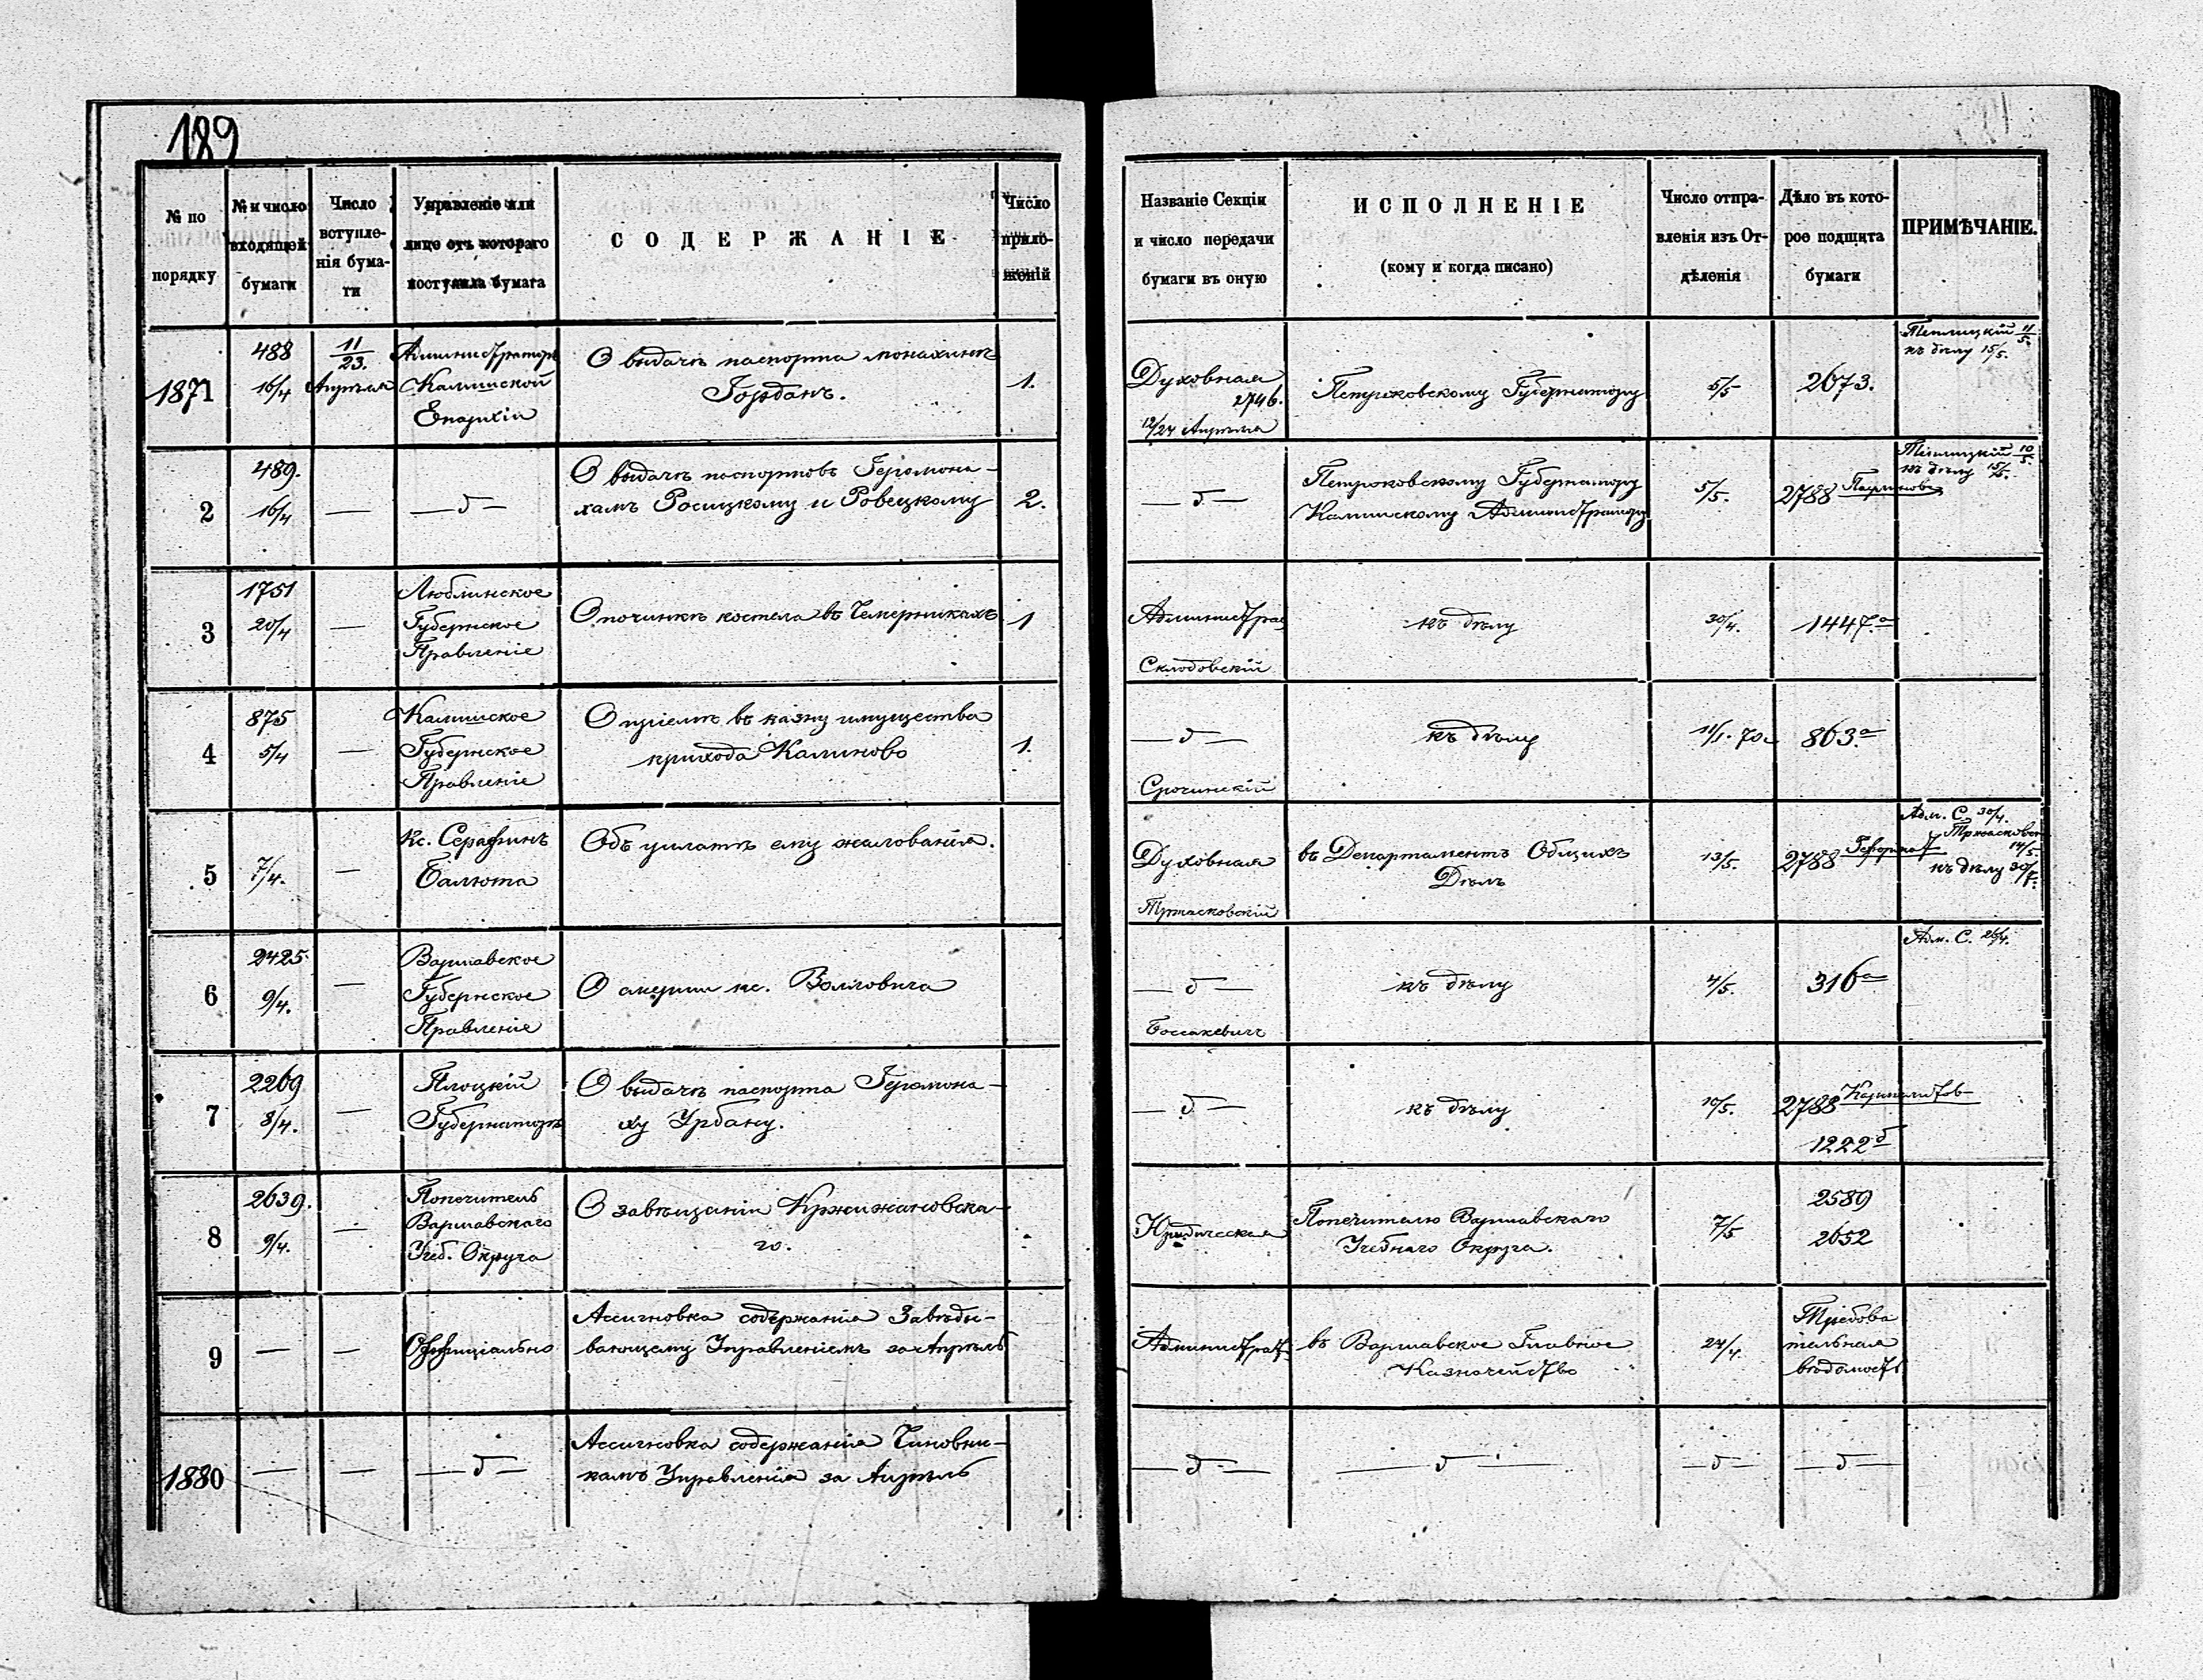 189
№ по порядку
№ и число входящей бумаги
Число вступле-нія бума-ги
Управленіе или лице отъ котораго поступила бумага
СОДЕРЖАНІЕ
Число прило-женій
Названіе Секціи и число передачи бумаги въ оную
ИСПОЛНЕНІЕ
(кому и когда писано)
Число отпра-вленія изъ От-дѣленія
Дѣло въ кото-рое подшита бумаги
ПРИМѢЧАНІЕ.
1871
488
16/4
11/23.
Апрѣля
Администраторъ
Калишской
Епархіи
О выдачѣ паспорта монахинѣ
Горданъ.
1.
Духовная
2746.
12/24 Апрѣля
Петроковскому Губернатору
5/5
2673.
11/5.
къ дѣлу 15/5.
2
489.
16/4
—
— д —
О выдачѣ паспортовъ Іеромона-
хамъ Росицкому и Ровецкому
2.
— д —
Петроковскому Губернатору
Калишскому Администратору
5/5.
2788
10/5.
къ дѣлу 15/5.
3
1751
20/4
—
Люблинское
Губернское
Правленіе
О починкѣ костела въ Чемерникахъ
1
Администрац
Склодовскій
къ дѣлу
30/4.
1447.а
4
875
5/4
—
Калишское
Губернское
Правленіе
О пріемѣ въ казну имущества
прихода Калиново
1.
— д —
Срочинскій
къ дѣлу
11/1. 70
863.а
5
7/4.
—
Кс. Серафинъ
Балюта
Объ уплатѣ ему жалованія.
Духовная
Тржасковскій
въ Департаментъ Общихъ
Дѣлъ
13/5.
2788
Адм. С. 30/4.
14/5.
къ дѣлу
6
2425.
9/4.
—
Варшавское
Губернское
Правленіе
О смерти кс. Волловича
— д —
Боссакевичъ
къ дѣлу
4/5.
316а
Адм. С. 26/4.
7
2269
8/4.
—
Плоцкій
Губернаторъ
О выдачѣ паспорта Іеромона-
ху Урбану.
— д —
къ дѣлу
10/5.
2788
1222д
8
2639.
9/4.
—
Попечитель
Варшавскаго
Учеб. Округа
О завѣщаніи Кржижановска-
го.
Юридическая
Попечителю Варшавскаго
Учебнаго Округа.
7/5
2589
2652
9
—
—
Оффиціально
Ассигновка содержанія Завѣды-
вающему Управленіемъ за Апрѣль
Администрац.
въ Варшавское Главное
Казначейство
24/4.
Требова
тельная
вѣдомость
1880
—
—
— д —
Ассигновка содержанія Чиновни-
камъ Управленія за Апрѣль
— д —
— д —
— д —
— д —